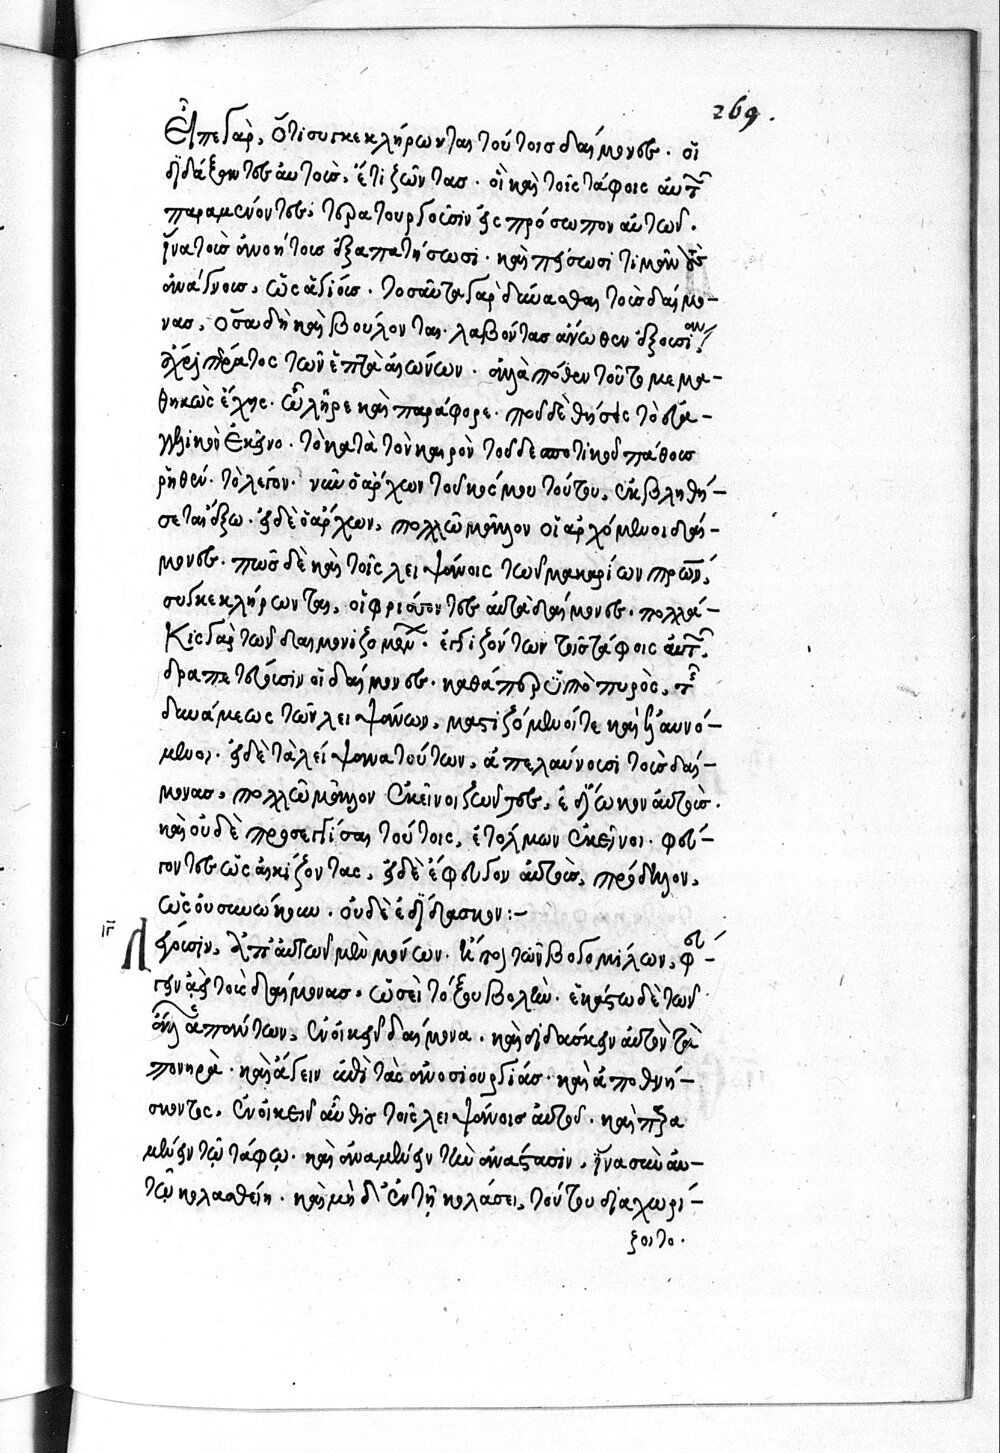 269.
Εἶπε γὰρ, ὅτι συγκεκλήρωνται τούτοις δαίμονες. οἳ
διδάξοντες αὐτοὺς, ἔτι ζῶντας. οἳ καὶ τοῖς τάφοις αὐτῶν
παραμένοντες, τερατουργοῦσιν εἰς πρόσωπον αὐτῶν.
ἵνα τοὺς ἀνοήτους ἐξαπατήσωσι. καὶ πείσωσι τιμᾶν τοὺς
ἀνάγνους, ὡς ἁγίους. τοσαῦτα γὰρ δύνασθαι τοὺς δαίμο-
νας, ὅσα δὴ καὶ βούλονται. λαβόντας ἄνωθεν ἐξουσίαν,
ἄχρι πέρατος τῶν ἑπτὰ αἰώνων. ἀλλὰ πόθεν τοῦτο μεμα-
θηκὼς ἔχεις. ὦ λῆρε καὶ παράφορε. ποῦ δὲ θήσεις τὸ εὐα-
γγελικὸν ἐκεῖνο. τὸ κατὰ τὸν καιρὸν τοῦ δεσποτικοῦ πάθους
ῥηθέν. τὸ λέγον. νῦν ὁ ἄρχων τοῦ κόσμου τούτου, ἐκβληθή-
σεται ἔξω. εἰ δὲ ὁ ἄρχων, πολλῶ μᾶλλον οἱ ἀρχόμενοι δαί-
μονες. πῶς δὲ καὶ τοῖς λειψάνοις τῶν μακαρίων πρων,
συγκεκλήρωνται, οἱ φρίττοντες αὐτὰ δαίμονες. πολλά-
κις γὰρ τῶν δαιμονιζομένων. ἐγγιζόντων τοῖς τάφοις αὐτῶν,
δραπετεύουσιν οἱ δαίμονες. καθάπερ ὑπὸ πυρὸς, τῆς
δυνάμεως τῶν λειψάνων, μαστιζόμενοί τε καὶ ἐλαυνό-
μενοι. εἰ δὲ τὰ λείψανα τούτων, ἀπελαύνουσι τοὺς δαί-
μονας, πολλῶ μᾶλλον ἐκεῖνοι ζῶντες, ἐδίωκον αὐτούς.
καὶ οὐδὲ προσεγγίσαι τούτοις, ἐτόλμων ἐκεῖνοι. φεύ-
γοντες ὡς αἰκίζοντας, εἰ δὲ ἔφευγον αὐτοὺς, πρόδηλον,
ὡς οὐ συνώκουν. οὐδὲ ἐδίδασκον:–
ιγ Λέγουσιν, ἀπ' αὐτῶν μὲν μόνων. ἤτοι τῶν βογομίλων, φεύ-
γειν ἀεὶ τοὺς δαίμονας, ὡσεὶ τόξου βολὴν. ἑκάστω δὲ τῶν
ἄλλων ἁπάντων, ἐνοικεῖν δαίμονα. καὶ διδάσκειν αὐτὸν τὰ
πονηρὰ. καὶ ἄγειν ἐπὶ τὰς ἀνοσιουργίας. καὶ ἀποθνή-
σκοντος, ἐνοικεῖν αὖθις τοῖς λειψάνοις αὐτοῦ. καὶ παρα
μένειν τῷ τάφῳ. καὶ ἀναμένειν τὴν ἀνάστασιν, ἵνα σὺν αὐ-
τῷ κολασθείη. καὶ μὴ δ' ἐν τῇ κολάσει, τούτου διαχωρί-
ζοιτο.